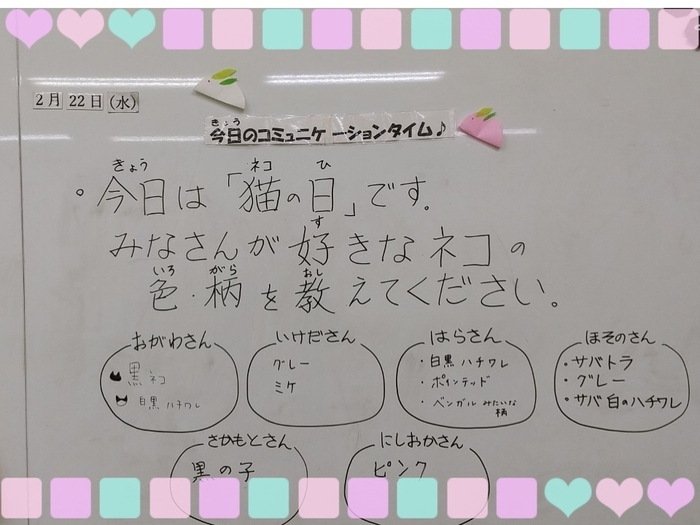 2月 22日 (水)
きょう
今日のコミュニケーションタイム♪
きょう ネコ ひ
。今日は「猫の日」です。
す
みなさんが好きなネコの
いろ がら おし
色・柄を教えてください。
おがわさん いけださん はらさん ほそのさん
黒ネコ
白黒 ハチワレ
グレー
ミケ
・白黒 ハチワレ
・ポインテッド
・ベンガル みたいな
柄
・サバトラ
・グレー
・サバ白のハチワレ
さかもとさん にしおかさん
黒の子
ピンク